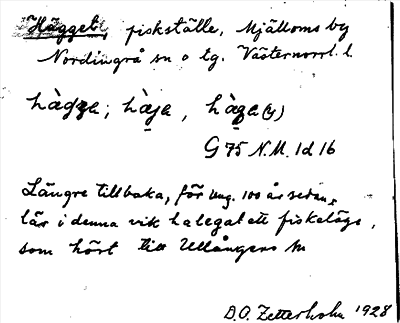 Häggeb, fiskställe, Mjälloms by
Nordingrå sn o tg. Västernorrl. l.
hàgga; hàja, hàga(y)
G 75 N.M. 1d 16
Längre tillbaka, för ung. 100 år sedan,
lär i denna vik ha legat ett fiskeläge,
som hört till Ullångers sn
D.O. Zetterholm 1928